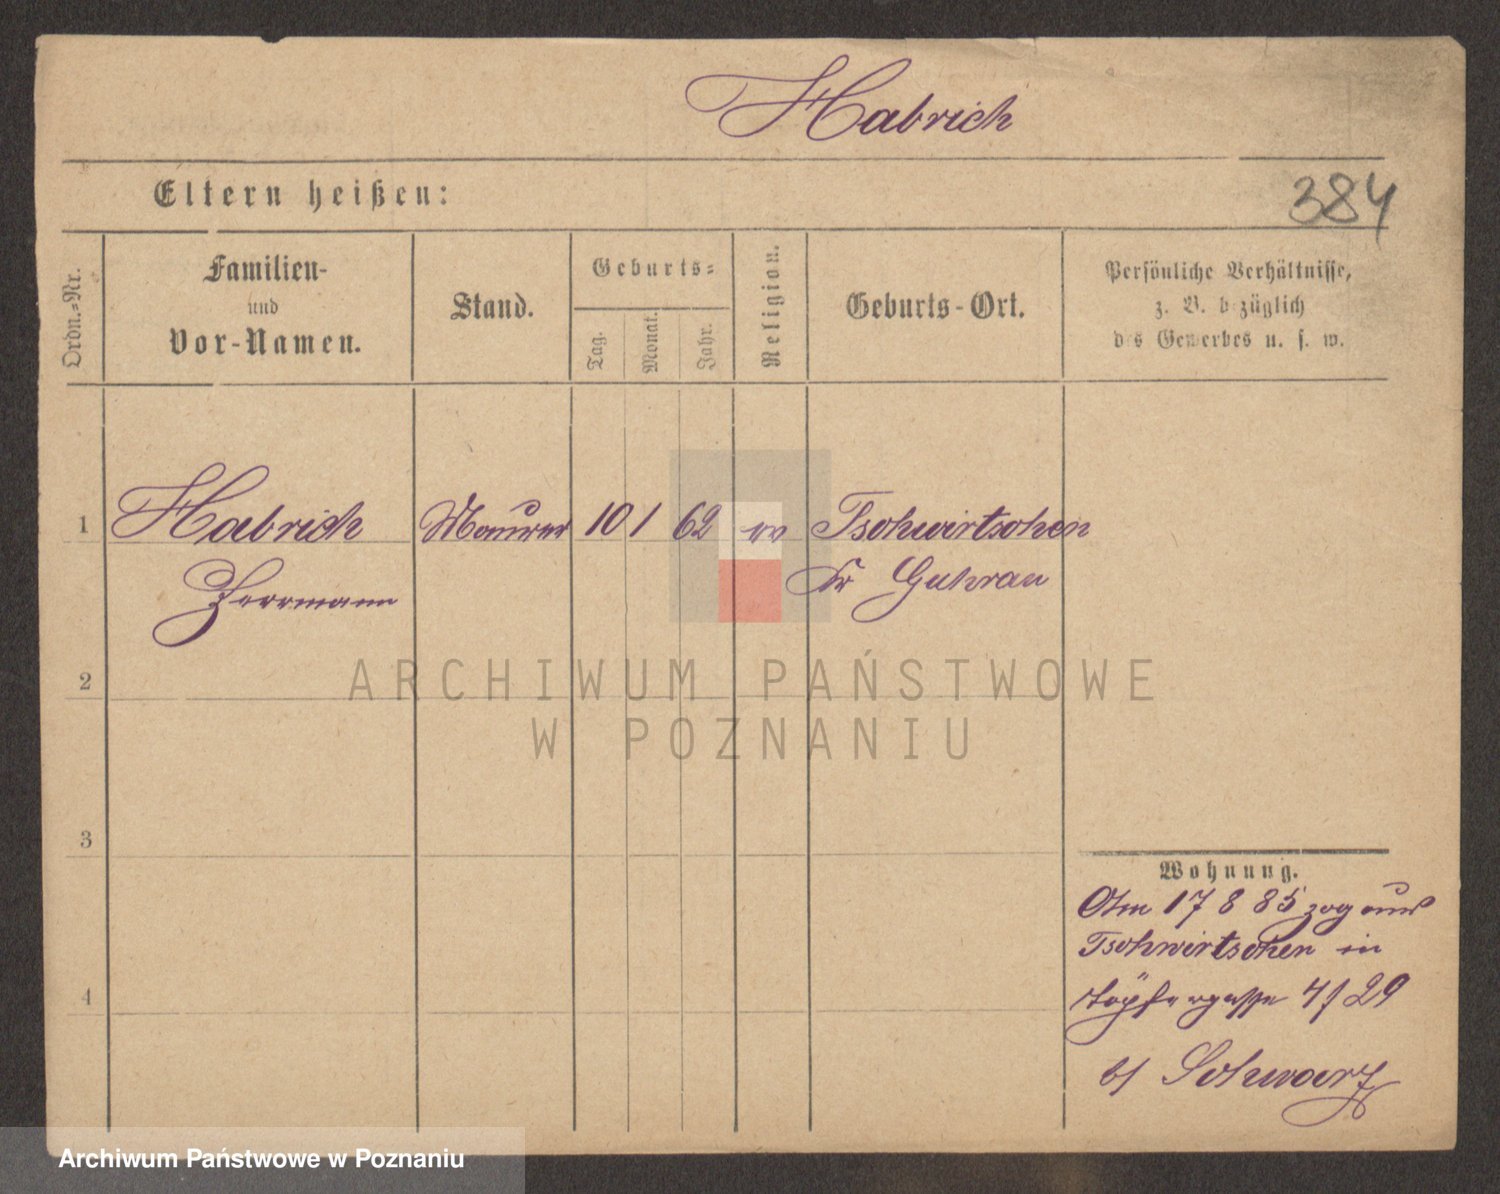 Habrich
Eltern heißen:
384
Ordn.-Nr.
Familien-
und
Vor-Namen.
Stand.
Geburts-
Tag.
Monat.
Jahr.
Religion.
Geburts-Ort.
Persönliche Verhältnisse,
z. B. bezüglich
des Gewerbes u. s. w.
1
Habrich
Herrmann
Maurer
10
1
62
ev
Tschwirtschen
Kr Guhrau
2
ARCHIWUM PAŃSTWOWE
W POZNANIU
3
4
Wohnung.
Am 17 8 85 zog aus
Tschwirtschen in
Töpfergasse 4/29
b/ Schwarz
Archiwum Państwowe w Poznaniu